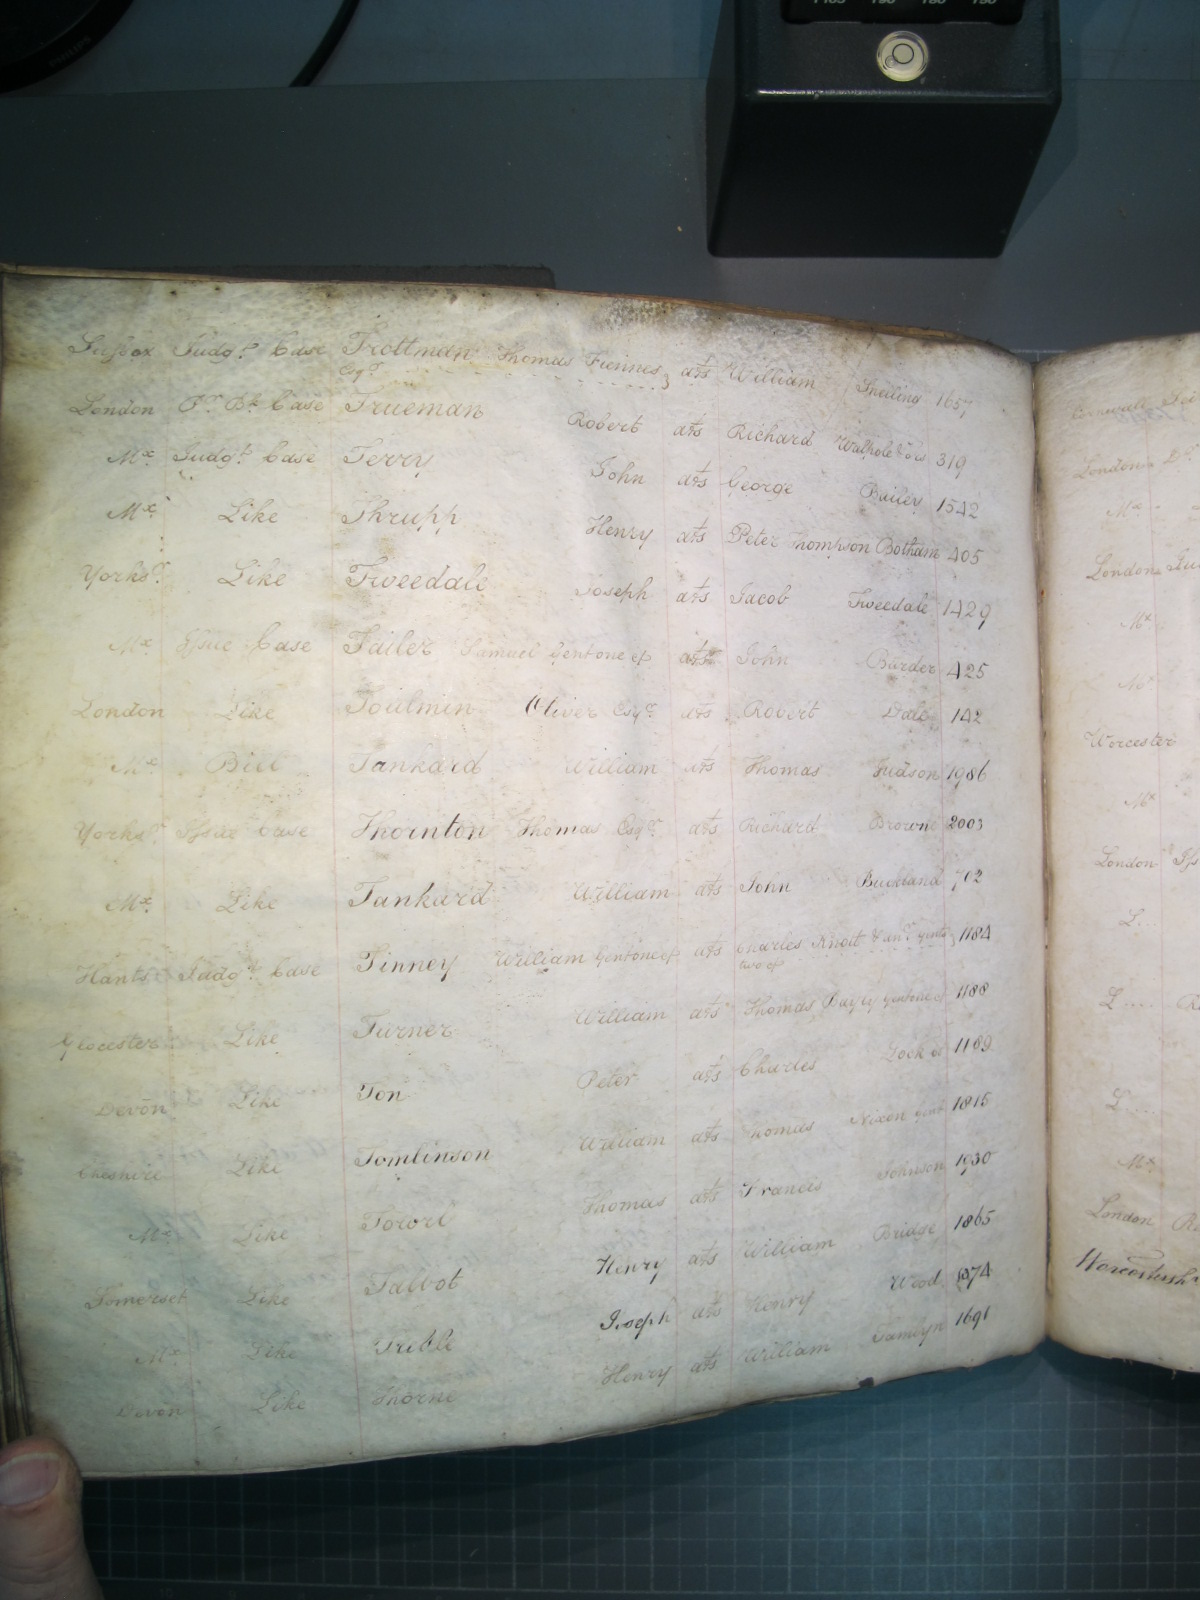 Sussex Judgt. Case Trottman Thomas Fiennes ats William Snelling 1657
Esqr.
London Pr. Bk. Case Trueman Robert ats Richard Walpole & ors 319
Mx. Judgt. Case Terry John ats George Bailey 1542
Mx. Like Thrupp Henry ats Peter Thompson Botham 405
Yorksr. Like Tweedale Joseph ats Jacob Tweedale 1429
Mx. Issue Case Tailer Samuel Gent one &c ats John Burder 425
London Like Toulmin Oliver Esqr. ats Robert Dale 142
Mx. Bill Tankard William ats Thomas Judson 1986
Yorksr. Issue Case Thornton Thomas Esqr. ats Richard Browne 2003
Mx. Like Tankard William ats John Buckland 702
Hants Judgt. Case Tinney William Gent one &c ats Charles Knott & anr. Gents 1184
two &c
Glocester Like Turner William ats Thomas Bayly Gent one &c 1188
Devon Like Ton Peter ats Charles 1189
Cheshire Like Tomlinson William ats Thomas Nixon Gent 1815
Mx. Like Thomas ats Francis Johnson 1930
Somerset Like Talbot Henry ats William Bridge 1865
Mx. Like Treble Joseph ats Henry Wood 1874
Devon Like Thorne Henry ats William Tamlyn 1691
Cornwall
London
Mx.
London
Mx.
Mx.
Worcester
Mx.
London
L....
L....
L....
Mx.
London
PHILIPS